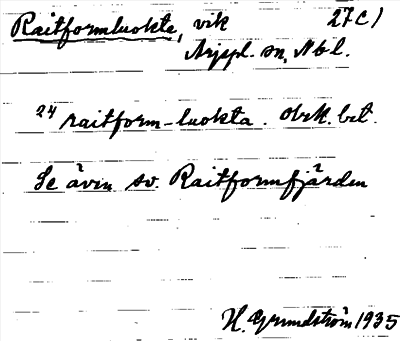 Raitformluokta, vik 27C)
Arjepl. sn, Nbl.
24 raitform-luokta. obek. bet.
Se även sv. Raitformfjärden
H. Grundström 1935